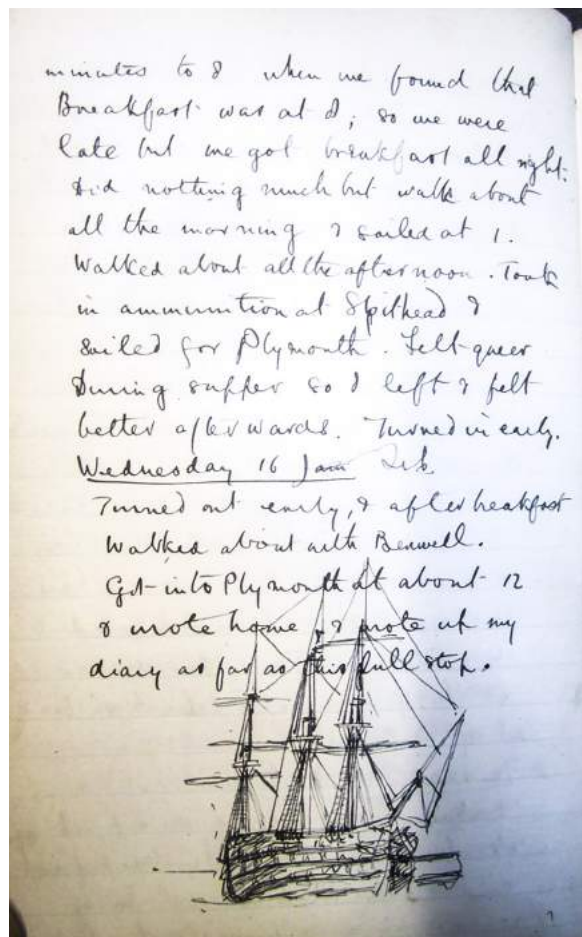 minutes to 8 when we found that
Breakfast was at 8; so we were
late but we got breakfast all right.
Did nothing much but walk about
all the morning & sailed at 1.
Walked about all the afternoon. Took
in ammunition at Spithead &
sailed for Plymouth. Felt queer
During supper so I left & felt
better afterwards. Turned in early.
Wednesday 16 Jan
Turned out early, & after breakfast
Walked about with Benwell.
Got into Plymouth at about 12
& wrote home & wrote up my
diary as far as this full stop.